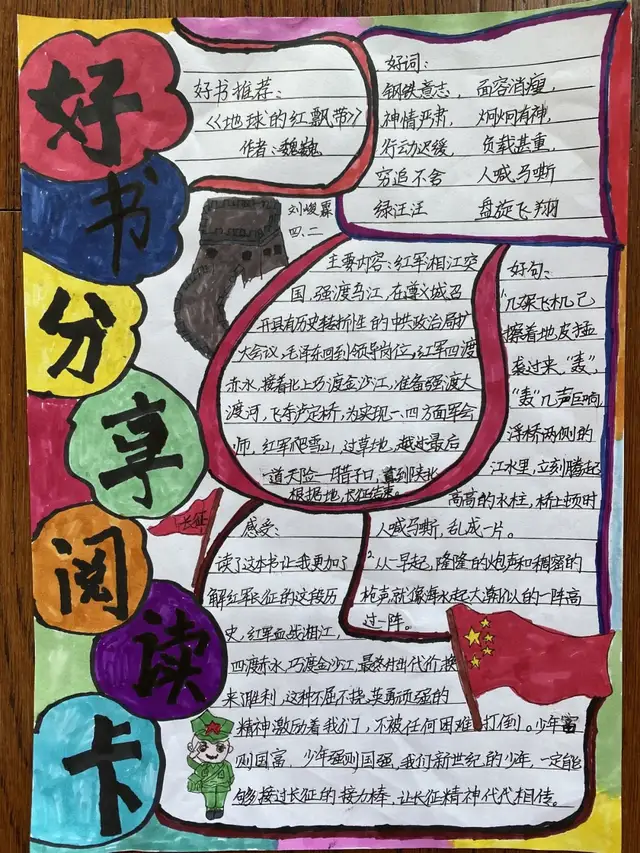 好书分享阅读卡
好书推荐:
《地球的红飘带》
作者:魏巍
好词:
钢铁意志, 面容消瘦,
神情严肃, 炯炯有神,
行动迟缓, 负载甚重,
穷追不舍 人喊马嘶
绿汪汪 盘旋飞翔
刘峻霖
四、二
主要内容:红军湘江突
围,强渡乌江,在遵义城召
开具有历史转折性的中共政治局扩
大会议,毛泽东回到领导岗位,红军四渡
赤水,接着北上巧渡金沙江,准备强渡大
渡河,飞夺泸定桥,为实现一、四方面军会
师,红军爬雪山,过草地,越过最后
一道天险—腊子口,直到陕北
根据地,长征结束。
好句:
1几架飞机已
擦着地皮猛
袭过来,“轰”,
“轰”几声巨响,
浮桥两侧的
江水里,立刻腾起
高高的水柱,桥上顿时
人喊马斯,乱成一片。
2从一早起,隆隆的炮声和稠密的
枪声就像海水起大潮似的一阵高
过一阵。
长征
感受:
读了这本书让我更加了
解红军长征的这段历
史,红军血战湘江,
四度赤水,巧渡金沙江,最终付出代价换
来胜利,这种不屈不挠,英勇顽强的
精神激励着我们,不被任何困难打倒。少年富
则国富,少年强则国强,我们新世纪的少年,一定能
够接过长征的接力棒,让长征精神代代相传。